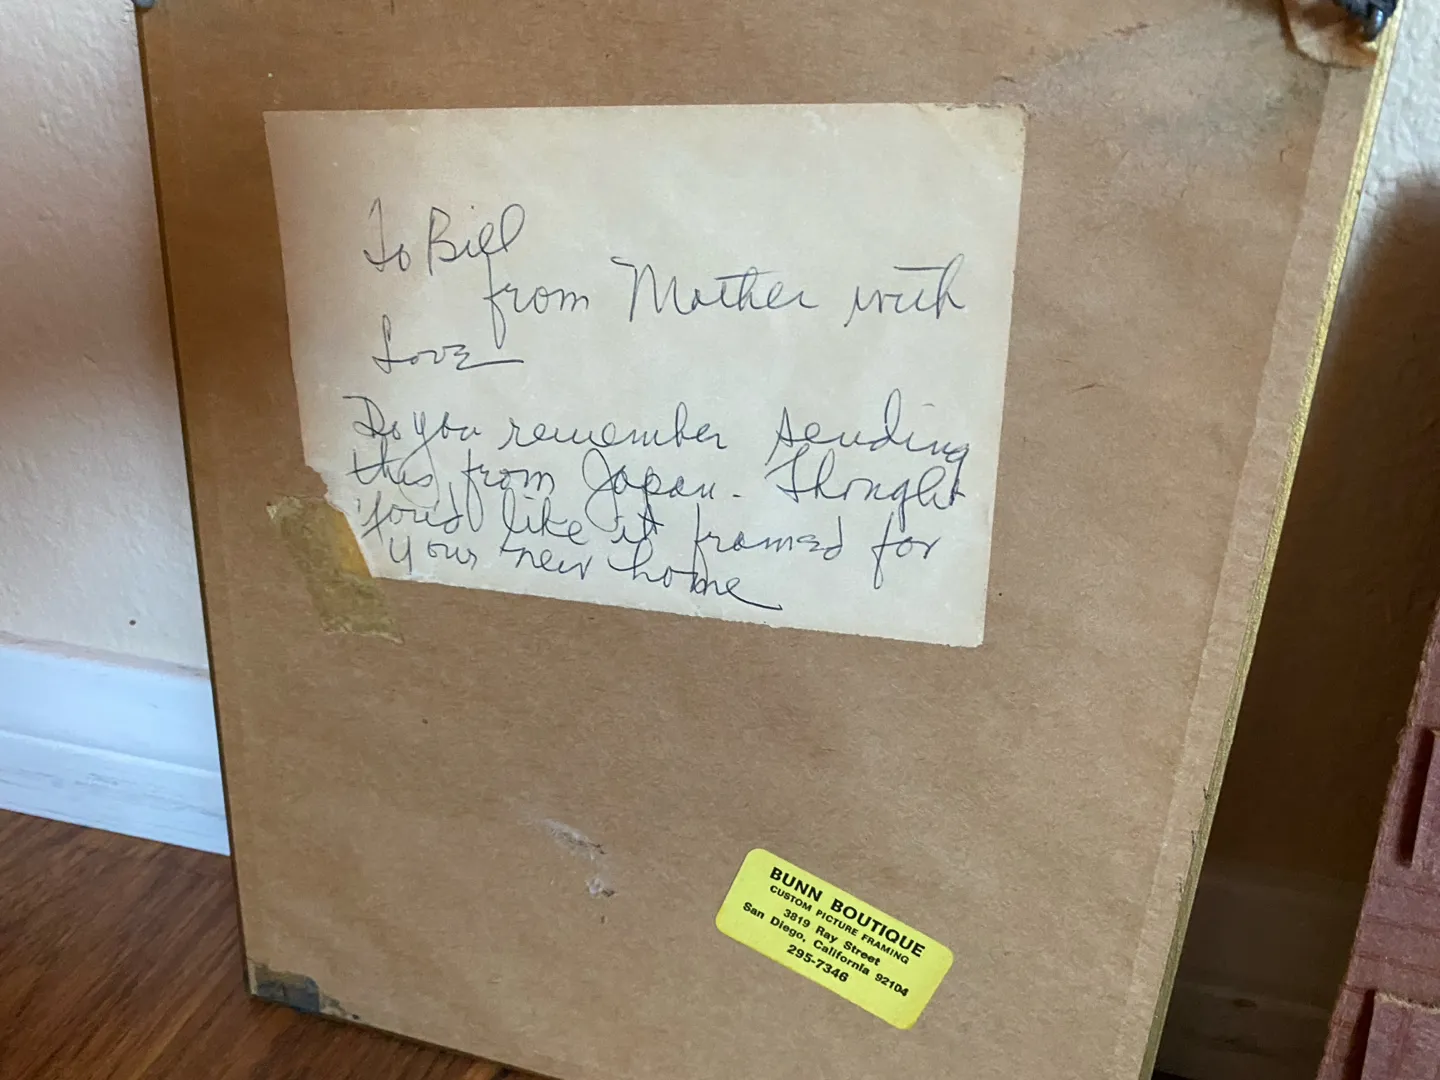 To Bill
from Mother with
Love
Do you remember sending
this from Japan. Thought
you'd like it framed for
your new home
BUNN BOUTIQUE
CUSTOM PICTURE FRAMING
3819 Ray Street
San Diego, California 92104
295-7346